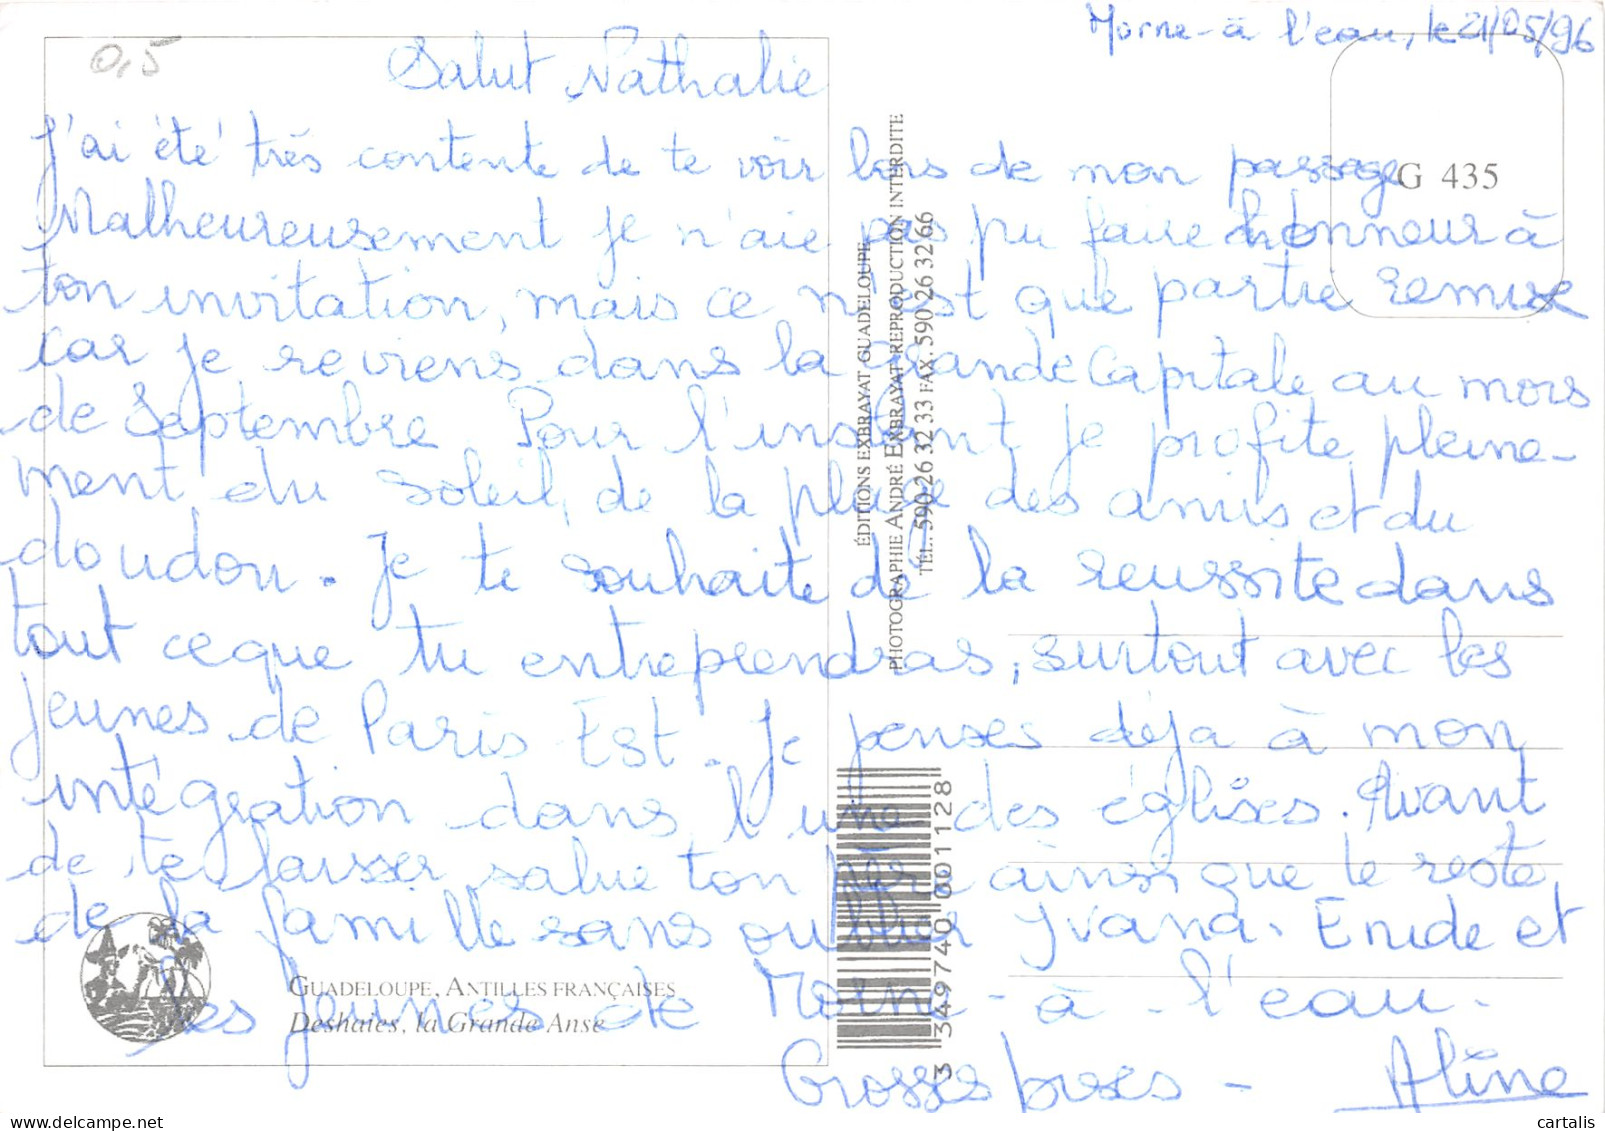 Morne-à l'eau, le 21/05/96
0,5
Salut Nathalie
J'ai été très contente de te voir lors de mon passage
Malheureusement je n'aie pas pu faire honneur à
ton invitation, mais ce n'est que partie remise
car je reviens dans la grande Capitale au mois
de Septembre. Pour l'instant je profite pleine-
ment du soleil, de la plage des amis et du
doudou. Je te souhaite de la reussite dans
tout ce que tu entreprendras, surtout avec les
jeunes de Paris Est. Je penses déjà à mon
intégration dans l'une des églises. Avant
de te laisser, salue ton père ainsi que le reste
de la famille sans oublier Yvana. Enide et
les jeunes de Morne-à-l'eau.
Grosses bises - Aline
G 435
ÉDITIONS EXBRAYAT GUADELOUPE
PHOTOGRAPHIE ANDRÉ EXBRAYAT-REPRODUCTION INTERDITE
TÉL. 590 26 32 33 FAX. 590 26 32 66
3 349740 001128
GUADELOUPE, ANTILLES FRANÇAISES
Deshaies, la Grande Anse
cartalis